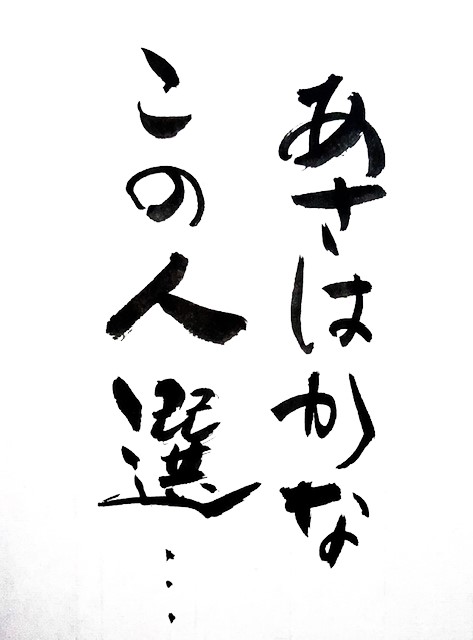 あさはかな
この人選…